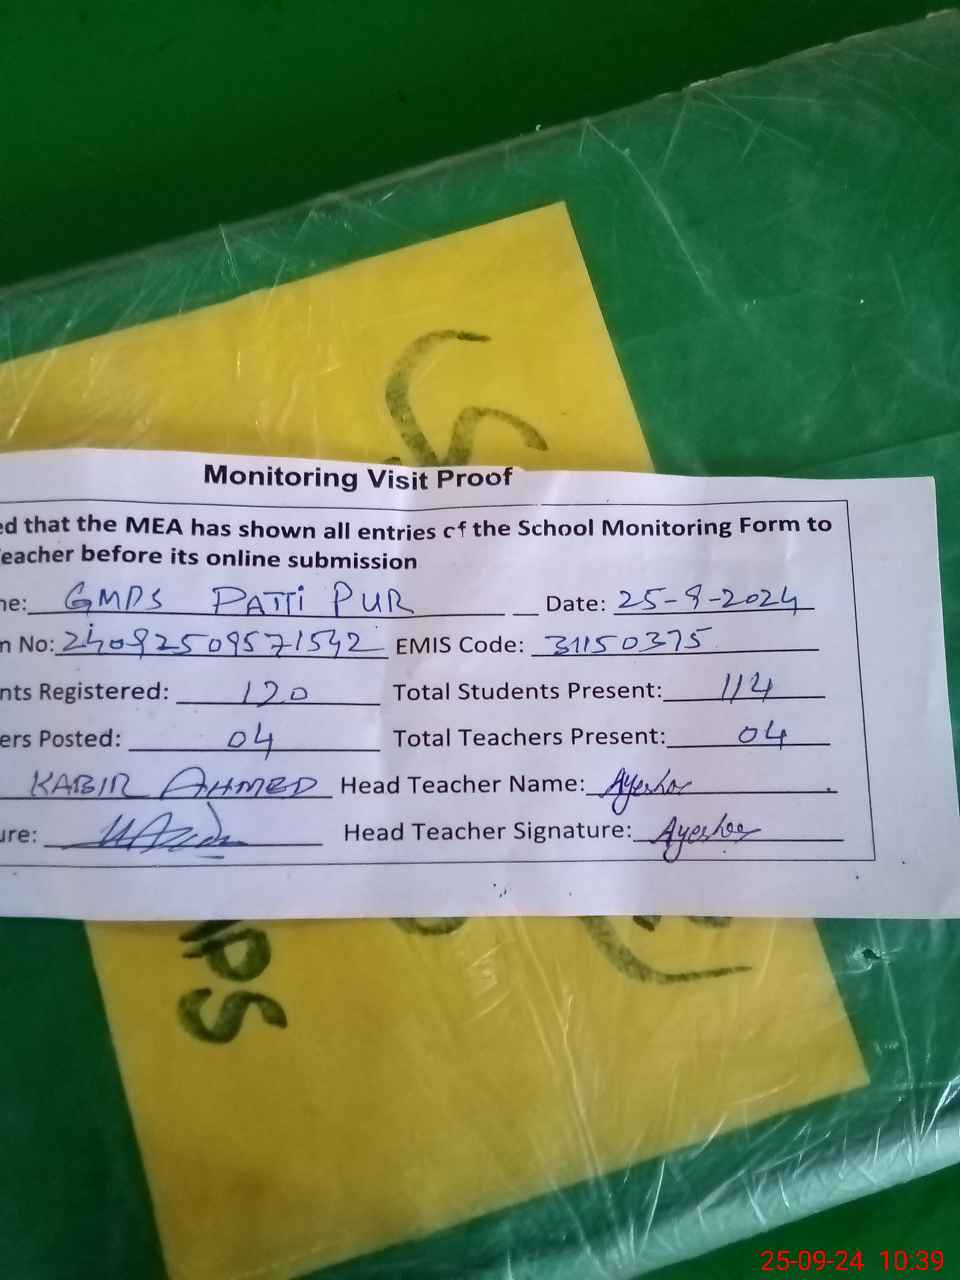 Monitoring Visit Proof
ed that the MEA has shown all entries of the School Monitoring Form to
eacher before its online submission
ne: GMPS PATTI PUR Date: 25-9-2024
n No: 24092509571542 EMIS Code: 31150375
nts Registered: 120 Total Students Present: 114
ers Posted: 04 Total Teachers Present: 04
KABIR AHMED Head Teacher Name: Ayesha
ure: Head Teacher Signature: Ayesha
25-09-24 10:39